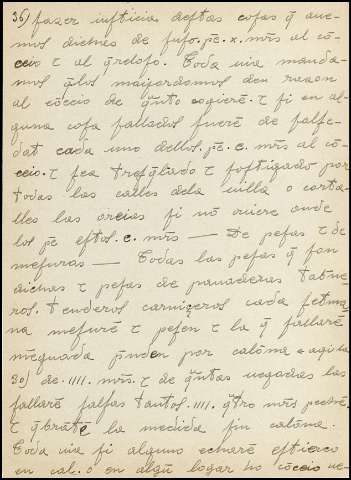 36) fazer iusticia destas cosas q̄ aue-
mos dichas de suso. pc̄. x. mr̄s al cō-
ceio τ al q̄reloso. Toda uia manda-
mos q̄ los maiordomos den razon
al cōceio de q̄nto cogierē. τ si en al-
guna cosa fallados fuerē de false-
dat cada uno dellos. pc̄. c. mr̄s al cō-
ceio. τ sea tresq̄lado τ fostigado por
todas las calles dela uilla o corta-
lles las oreias si nō ouiere onde
los pc̄ estos. c. mr̄s — De pesas τ de
mesuras — Todas las pesas q̄ son
dichas τ pesas de panaderas tabne-
ros. tenderos carniçeros cada setma-
na mesurē τ pesen τ la q̄ fallarē
menguada p̄nden por calōna
30) de. IIII. mr̄s. τ de q̄ntas uegadas las
fallarē falsas tantos. IIII. q̄tro mr̄s pechē.
τ q̄brātē la medida sin calōna.
Toda uia si alguno echarē estierco
en cal. o en algū logar no cōceio ue-